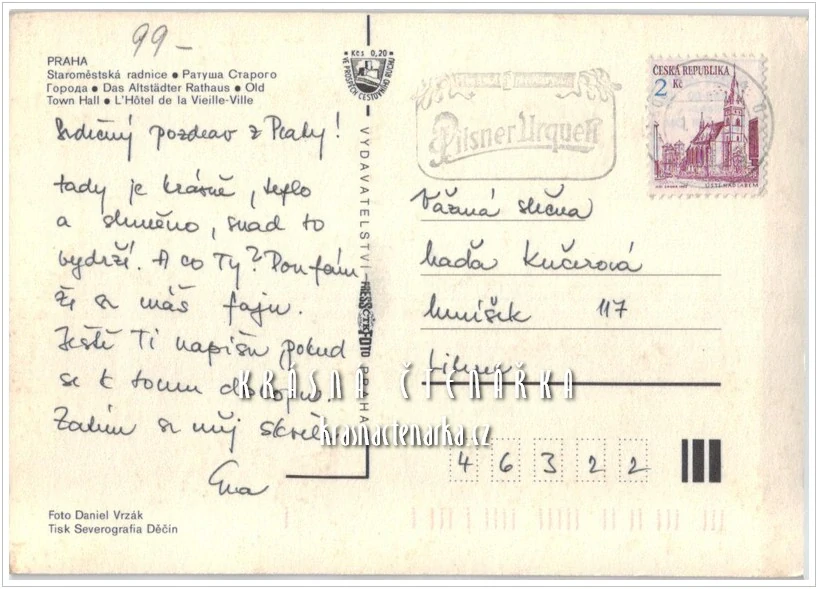 99-
PRAHA
Staroměstská radnice • Ратуша Старого
Города • Das Altstädter Rathaus • Old
Town Hall • L'Hôtel de la Vieille-Ville
Srdečný pozdrav z Prahy!
tady je krásně, teplo
a slunečno, snad to
vydrží. A co Ty? Doufám
že se máš fajn.
Ještě Ti napíšu pokud
se k tomu dokopu.
Zatím se měj skvěle
Eva
Foto Daniel Vrzák
Tisk Severografia Děčín
Kčs 0,20
VE PROSPĚCH CESTOVNÍHO RUCHU
VYDAVATELSTVÍ PRESSFOTO PRAHA
ČTK
Pilsner Urquell
ČESKÁ REPUBLIKA
2 Kč
ÚSTÍ NAD LABEM
Vážná slečna
Naďa Kučerová
Mníšek 117
Liberec
46322
KRÁSNÁ ČTENÁŘKA
krasnactenarka.cz